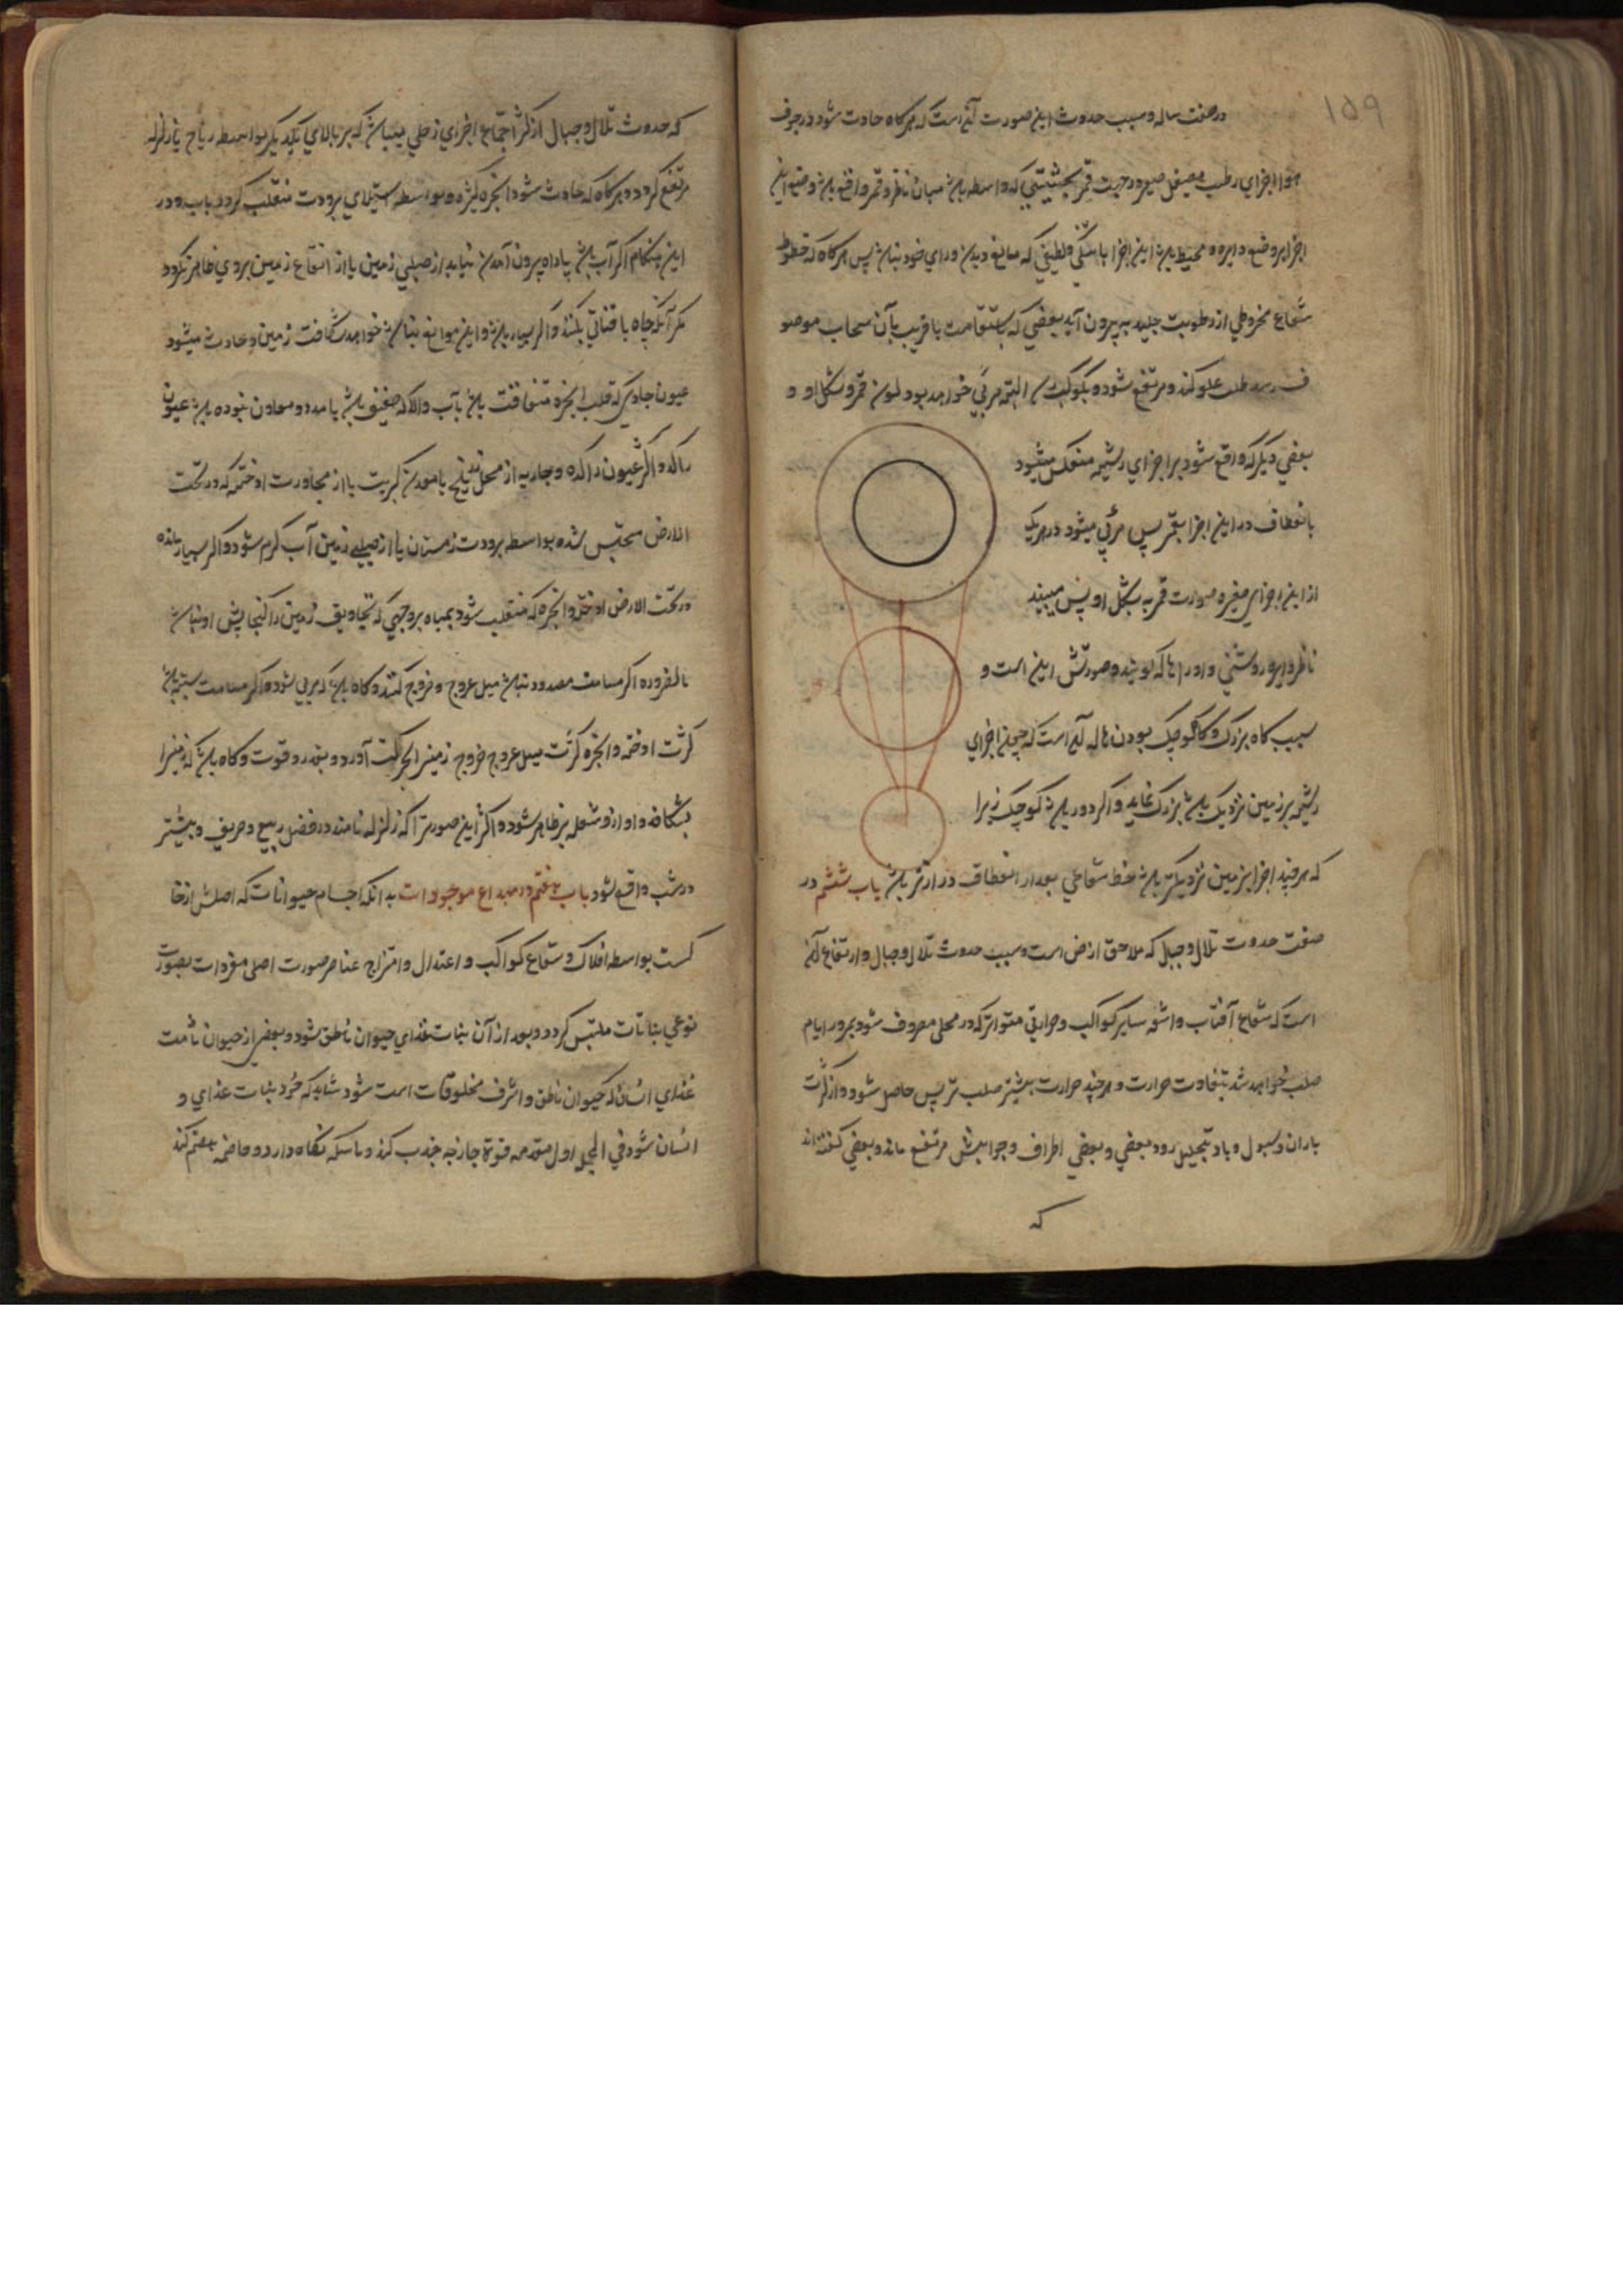 ۱۵۹
در صفت هاله و سبب حدوث این صورت آن است که هرگاه حادث شود در جوف
هوا اجزای رطب صیقل در جهت قمر بحیثیتی که واسطه باشد میان ناظر و قمر و واقع باشد وضع این
اجزا بر وضع دایره و محیط باشد این اجزا با ولطیفی که مانع دیدن ورای خود نباشد پس هرگاه که خطوط
شعاع مخروطی از رطوبت جلیدیه بیرون آید بعضی که باستقامت با قریب بآن سحاب موصو
ف رسد طلب علو کند و مرتفع شود و بکوکب البته مرئی خواهد بود لون قمر و شکل او و
بعضی دیگر که واقع شود بر اجزای رشیه منعکس میشود
بانعطاف در این اجزا بقمر پس مرئی میشود در هریک
از این اجزای صغیره صورت قمر به شکل او پس میبیند
ناظر دایره روشنی و او را هاله گویند و صورتش این است و
سبب گاه بزرگ و گاه کوچک بودن هاله آن است که چون اجزای
رشیه بر زمین نزدیک باشد بزرگ نماید و اگر دور باشد کوچک زیرا
که هرچند اجزا بزمین نزدیکتر باشد خط شعاعی بعد از انعطاف درازتر باشد باب ششم در
صفت حدوث تلال و جبال که ملاحق ارض است و سبب حدوث تلال و جبال و ارتفاع آن
است که شعاع آفتاب و اشعه سایر کواکب و حرارتی متواتر که در محلی مصروف شود بمرور ایام
صلب خواهد شد بتفاوت حرارت و هرچند حرارت بیشتر صلب تر پس حاصل شود و از کثرت
باران و سیول و باد بتحلیل رود بعضی و بعضی اطراف و جوانبش مرتفع ماند و بعضی گفته‌اند
که
که حدوث تلال و جبال از کثر اجتماع اجزای زحلی میباشد که بر بالای یکدیگر بواسطه ریاح یا زلزله
مرتفع گردد و هرگاه که حادث شود ابخره کثیره و بواسطه استیلای برودت منقلب گردد بآب و در
این هنگام اگر آب باشد یا راه بیرون آمدن نیابد از صلبی زمین یا از ارتفاع زمین بروی ظاهر نگردد
مگر آنکه چاه یا قناتی بکنند و اگر بسیار باشد و این موانع نباشد خواهد شکافت زمین و حادث میشود
عیون جاری که قلب ابخره متفاقت باشد بآب و الا که ضعیف باشد یا مدد و معاون نبوده باشد عیون
راکد و اکثر عیون راکده و جاریه از محل تلخ یا معدن کبریت یا از مجاورت ادخنه که در تحت
الارض محتبس شده بواسطه برودت زمستان یا از صلبی زمین آب گرم شود و اگر بسیار مانده
در تحت الارض ادخنه و ابخره که منقلب نشود بمیاه بر وجهی که تجاویف زمین را گنجایش او نباشد
بالضروره اگر مسامات مسدود نباشد میل عروج و خروج کنند و گاه باشد که مرئی شود و اگر مسامات بسته باشد
کثرت ادخنه و ابخره کثرت میل عروج خروج زمین را بحرکت آورد و بقدر قوت و گاه باشد که زمین را
بشکافد و آواز و شعله نیز ظاهر شود و اکثر این صورت را که زلزله نامند در فصل ربیع و خریف و بیشتر
در شب واقع شود باب هفتم در مبداء موجودات بدانکه اجسام حیوانات که اصلش از خا
کست بواسطه افلاک و شعاع کواکب و اعتدال و امتزاج عناصر صورت اصلی مفردات بصورت
نوعی نباتات ملتبس گردد و بعد از آن نبات غذای حیوان ناطق شود و بعضی از حیوان نامت
غذای انسان که حیوان ناطق و اشرف مخلوقات است شود شاید که خُرد نبات غذای و
انسان شود فی الجمله اول معده قوة جاذبه جذب کند و ماسکه نگاه دارد و هاضمه هضم کند